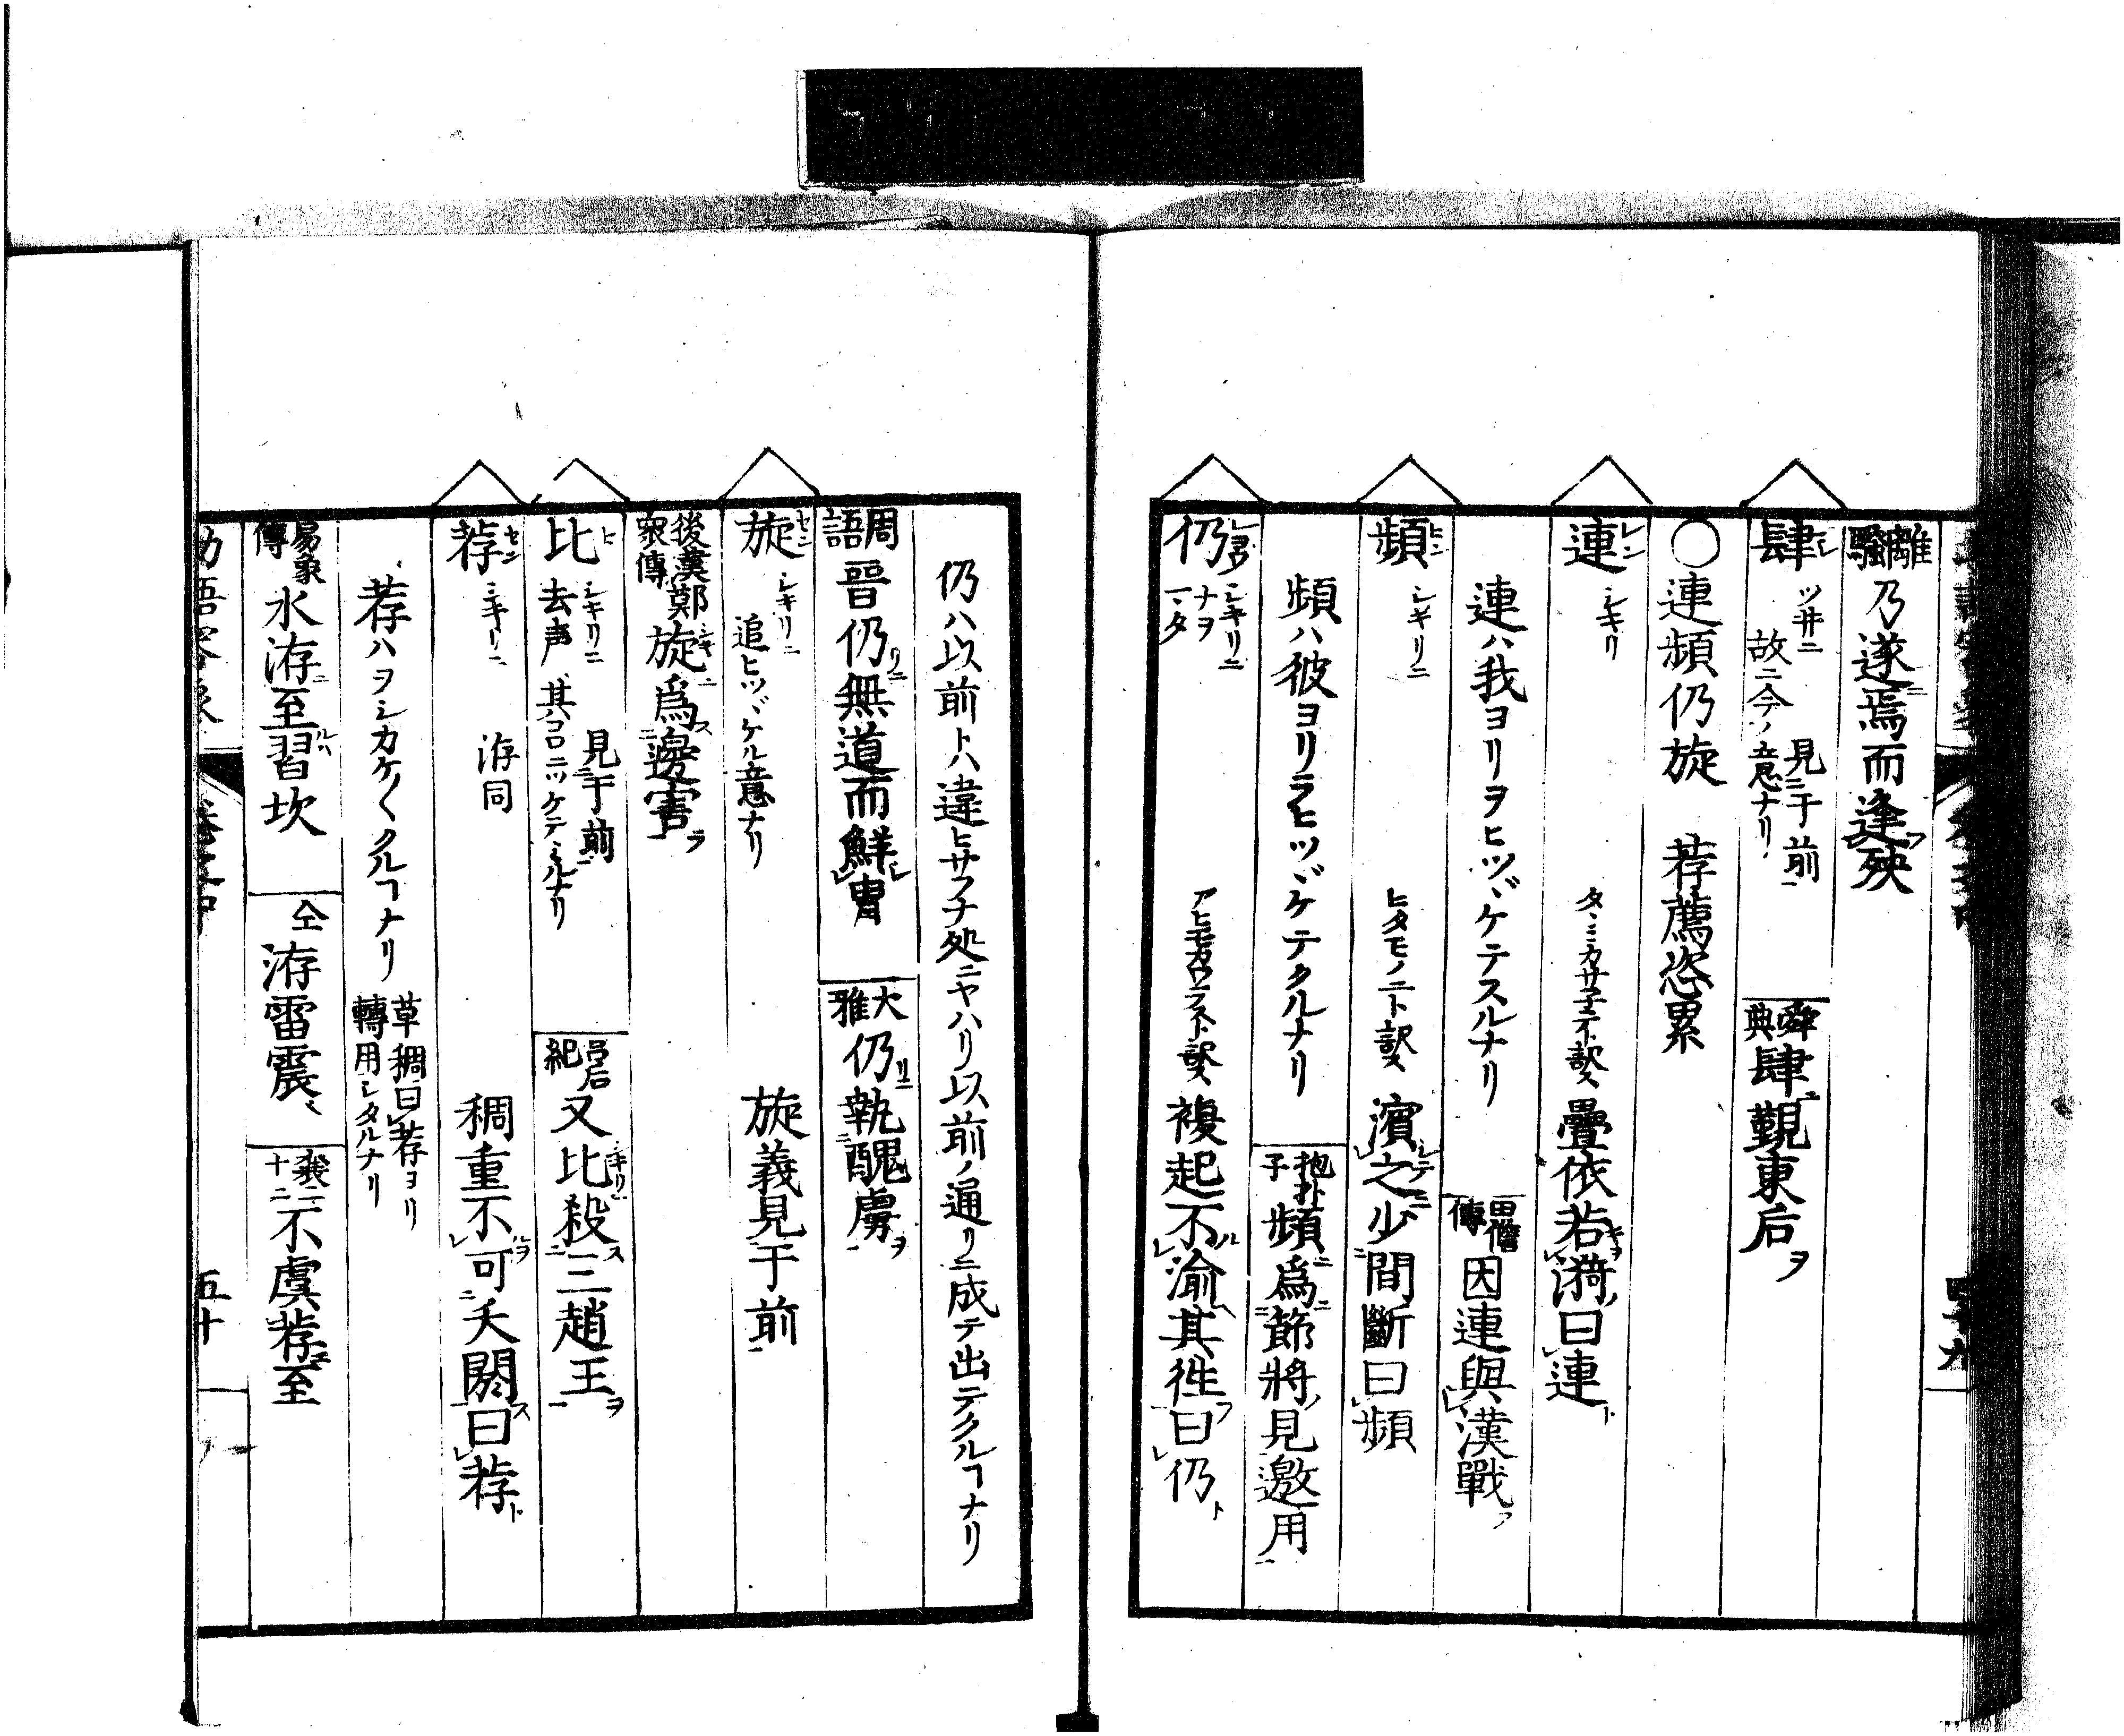 離騷 乃遂ニ焉而逢フ殃
肆シ ツ井ニ 見于前 故ニ今ノ意ナリ 舜典 肆ニ覲東后ヲ
○連頻仍旋 荐薦恣累
連レン シキリ 疊依若漪曰連ト
連ハ我ヨリヲヒツヾケテスルナリ 田儋傳 因連與漢戰フ
頻ヒン シキリニ ヒタモノニト訳ス 濱之少間斷曰頻
頻ハ彼ヨリヲヒツヾケテクルナリ 抱朴子 頻ニ爲節將ノ見邀用
仍 シキリニ 複起不渝其徃曰仍ト
仍ハ以前トハ違ヒサフナ処ニヤハリ以前ノ通リニ成テ出テクルヿナリ
周語 晉仍リニ無道而鮮冑 大雅 仍リニ執醜虜ヲ
旋セン シキリニ 追ヒツヾケル意ナリ 旋義見于前
後漢鄭衆傳 旋爲ス邊害ヲ
比ヒ シキリニ 見于前 去声 其コロニツケテミルナリ 呂后紀 又比殺ス三趙王ヲ
荐セン シキリニ 洊同 稠重不可夭閼曰荐ト
荐ハヲシカケ〱クルヿナリ 草稠曰荐ヨリ轉用シタルナリ
易象傳 水洊ニ至ルハ習坎 仝 洊雷震ヽ 襄二十二 不虞荐至
五十